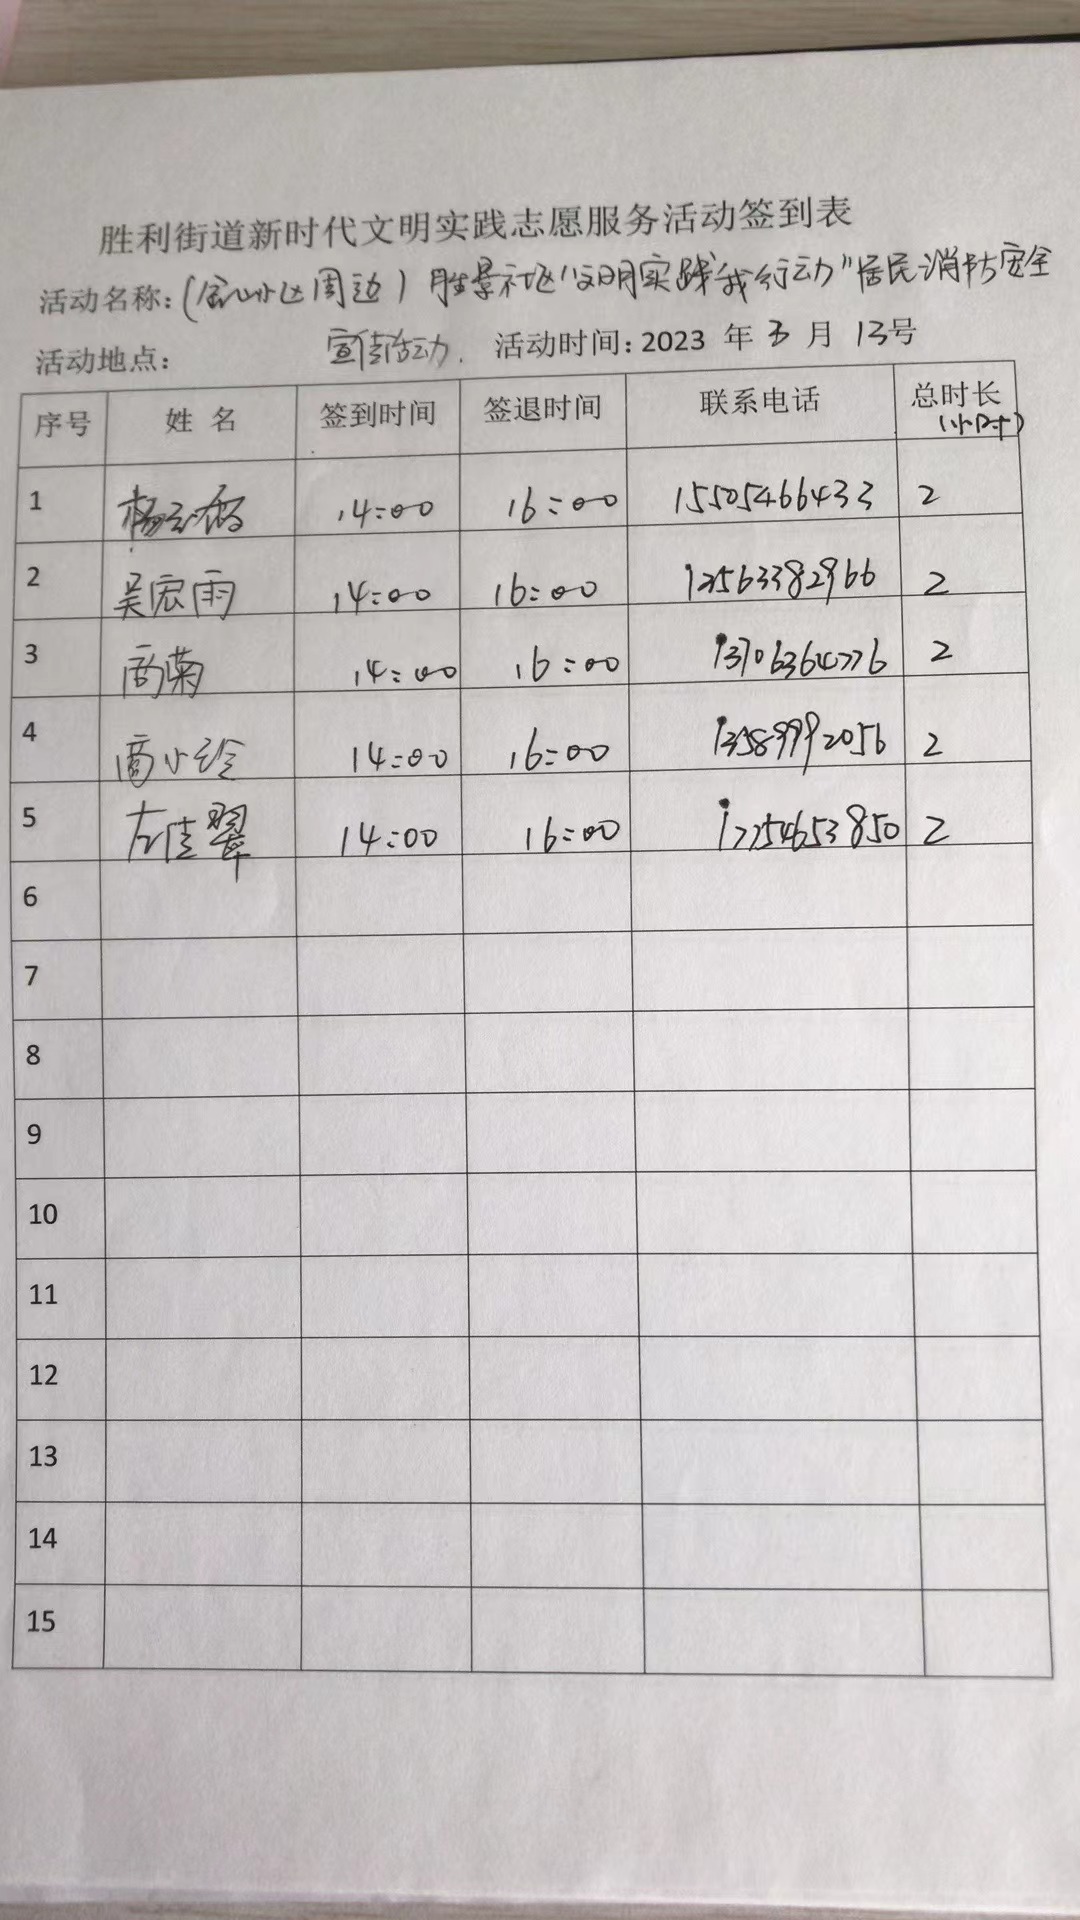 胜利街道新时代文明实践志愿服务活动签到表
活动名称：(小区周边) 胜景社区"文明实践我行动"居民消防安全
活动地点： 宣传活动. 活动时间：2023 年 3 月 13号
序号 姓 名 签到时间 签退时间 联系电话 总时长(小时)
1 14:00 16:00 15505466433 2
2 吴宏雨 14:00 16:00 2
3 商菊 14:00 16:00 13706364776 2
4 商小玲 14:00 16:00 13589992056 2
5 左佳翠 14:00 16:00 17754653850 2
6
7
8
9
10
11
12
13
14
15